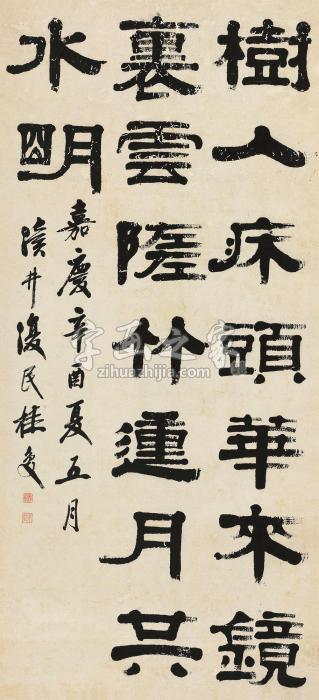 樹入床頭華來鏡
裏雲隨竹運月共
水朙
嘉慶辛酉夏五月
瀆井復民桂馥
字画之家
zihuazhijia.com